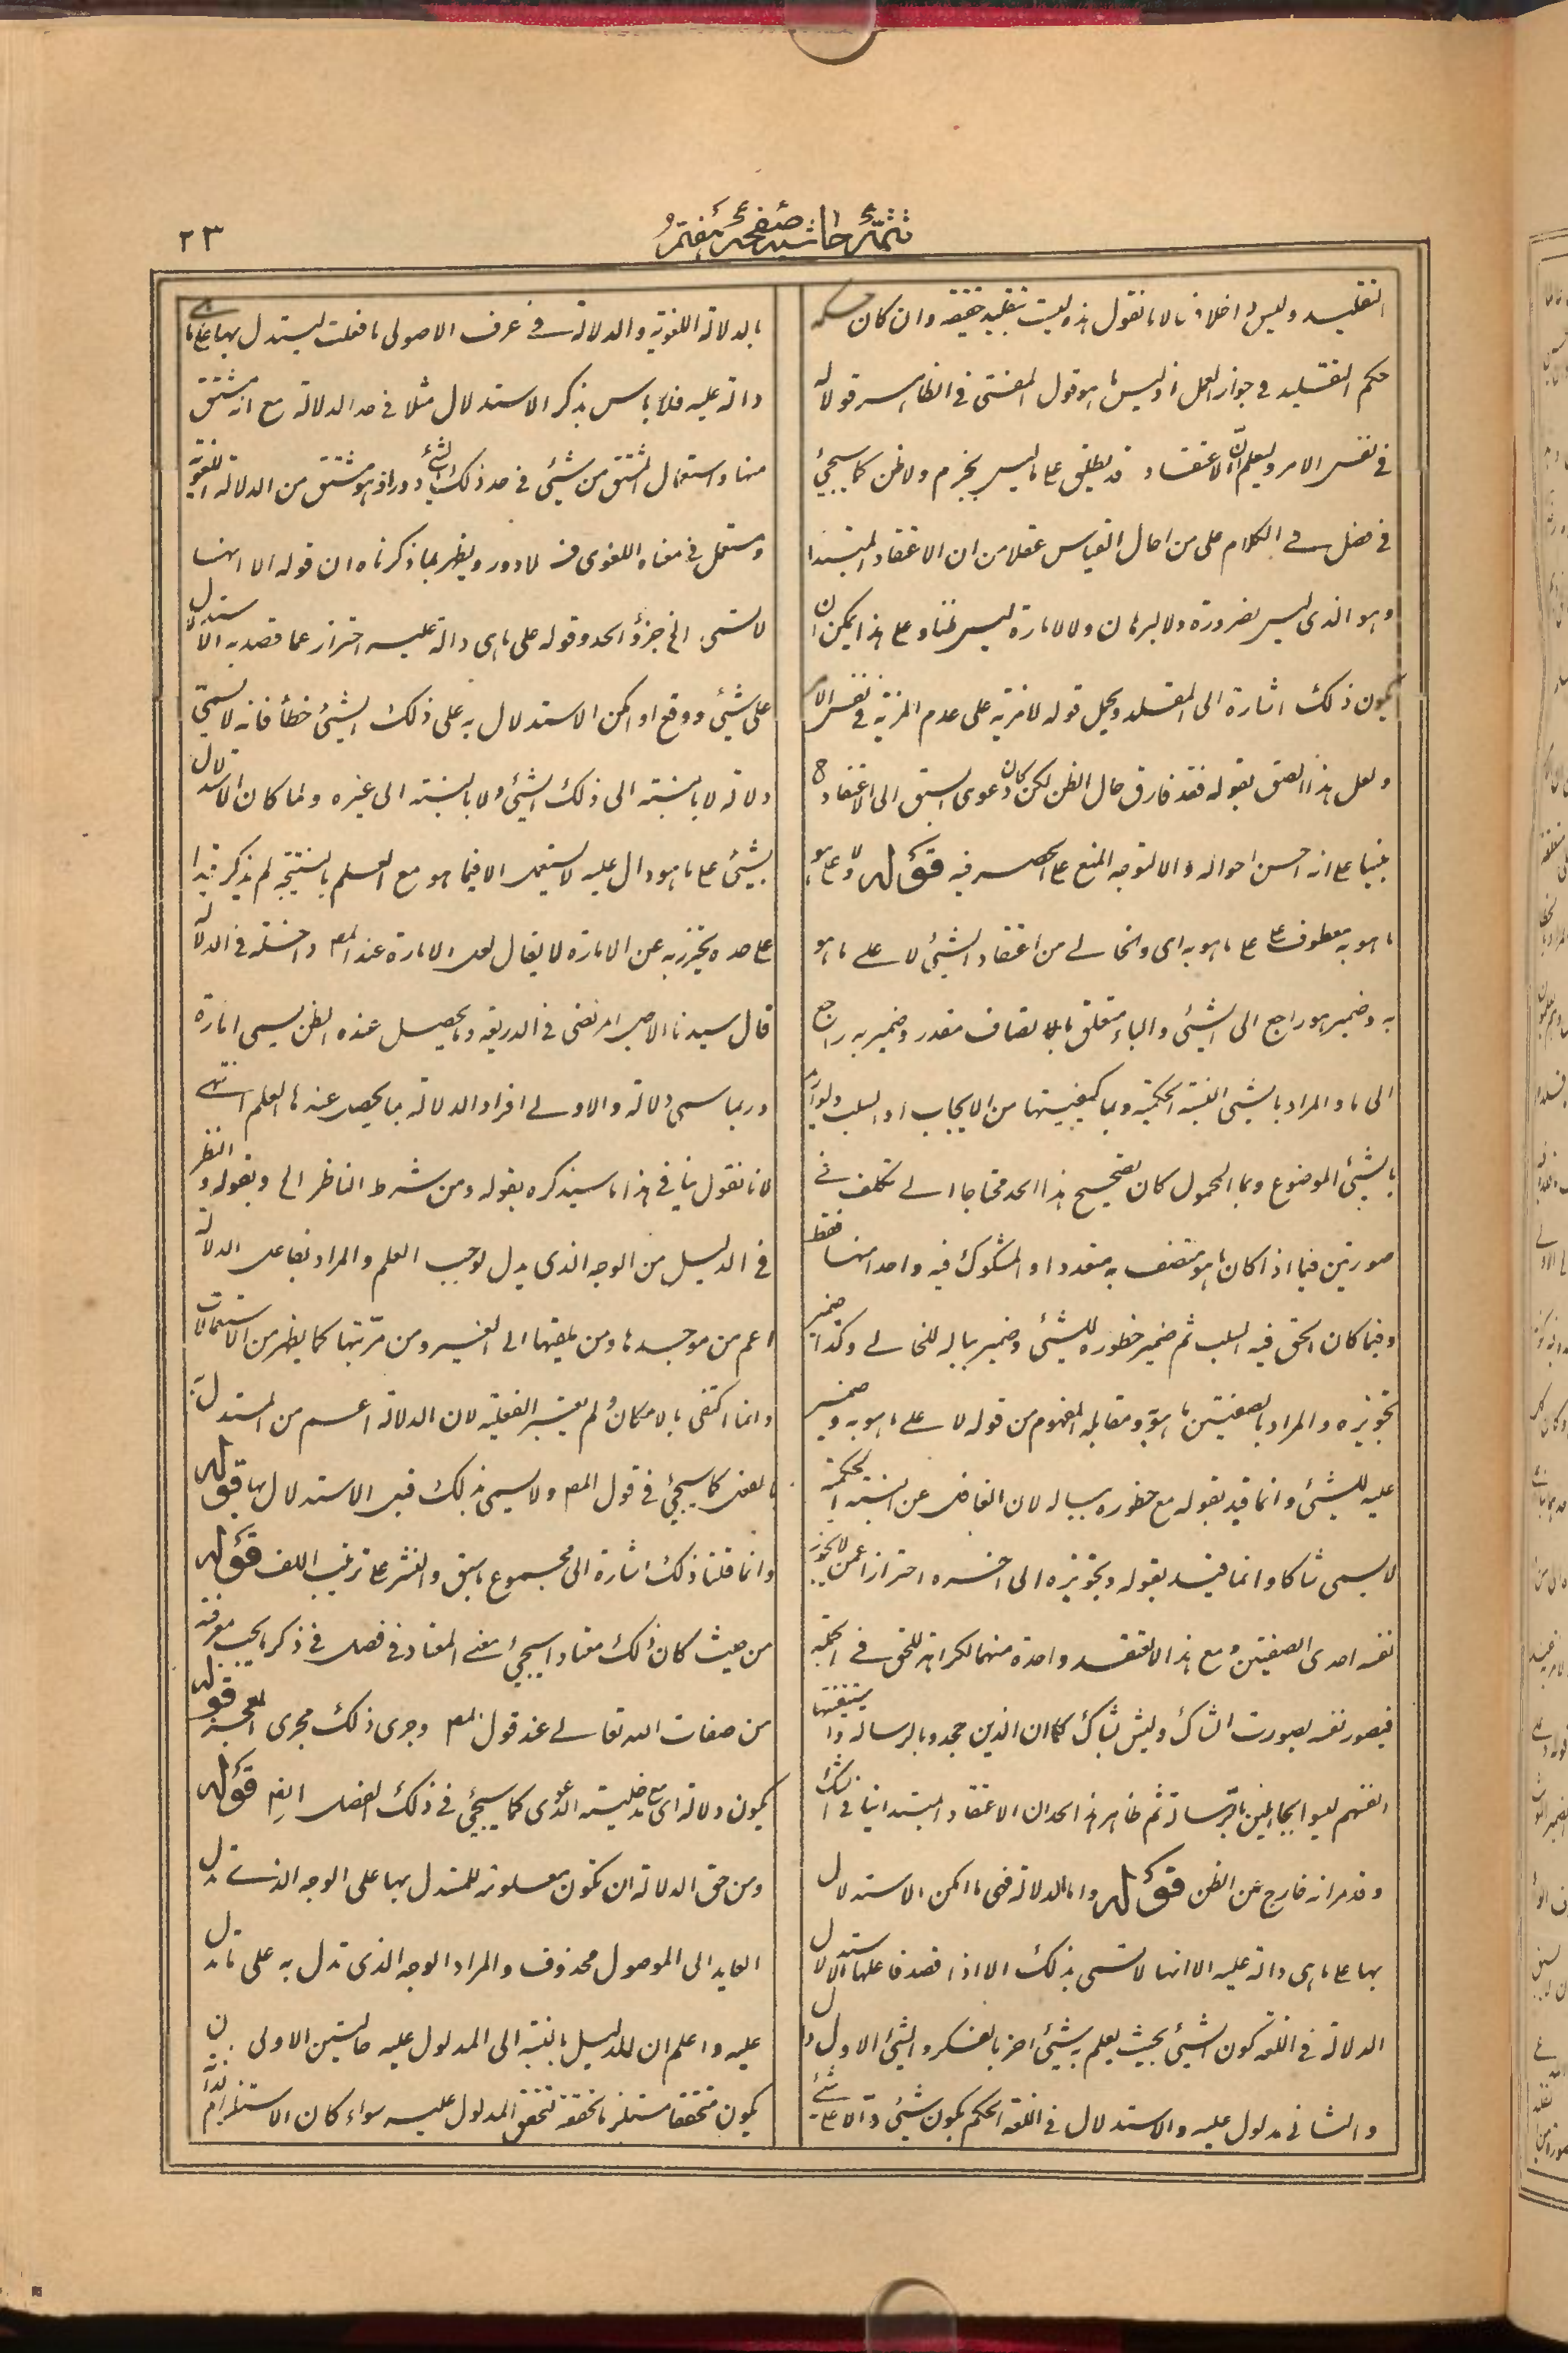 تتمّهٔ حاشیه صفحهٔ هفتم
٢٣
التقليد وليس داخلا فيه لانا نقول هذه ليست بتقليد حقيقة وان كان حكمه
حكم التقليد فى جواز العمل اذ ليس ما هو قول المفتى فى الظاهر قولا له
فى نفس الامر وليعلم انّ الاعتقاد قد يطلق على ما ليس بجزم ولا ظن كما سيجئ
فى فصل فى الكلام على من احال القياس عقلا من ان الاعتقاد المبتدا
وهو الذى ليس بضرورة ولا لبرهان ولا لامارة ليس بظن وعلى هذا يمكن ان
يكون ذلك اشارة الى المقلد ويحمل قوله لا مزية على عدم المزية فى نفس الامر
ولعل هذا الصق بقوله فقد فارق حال الظن لكن كان دعوى السبق الى الاعتقاد
مبنيا على انه احسن احواله والا لتوجه المنع على الحصر فيه قوله لا على ما هو
ما هو به معطوف على على ما هو به اى والخالى من اعتقاد الشيئ لا على ما هو
به وضمير هو راجع الى الشيئ والباء متعلق باتصاف مقدر وضمير به راجع
الى ما والمراد بالشيئ النسبة الحكمية وبما كيفيتها من الايجاب او السلب ولو اريد
بالشيئ الموضوع وبما المحمول كان تصحيح هذا الحد محتاجا الى تكلف فى
صورتين فيما اذا كان ما هو متصف به متعددا والمشكوك فيه واحدا منها فقط
وفيما كان الحق فيه السلب ثم ضمير خطوره للشيئ وضمير بباله للخالى وكذا ضمير
تجويزه والمراد بالصفتين ما هو به ومقابله المفهوم من قوله لا على ما هو به وضمير
عليه للشيئ وانما قيد بقوله مع خطوره بباله لان الغافل عن النسبة الحكمية
لا يسمى شاكا وانما قيد بقوله وتجويزه الى اخره احترازا عمن لا يجوز
نفسه احدى الصفتين ومع هذا لا يعتقد واحدة منهما لكراهته للحق فى الحقيقة
فيصور نفسه بصورة الشاك وليس بشاك كما ان الذين جحدوا بالرسالة واستيقنتها
انفسهم ليسوا بجاهلين بالرسالة ثم ظاهر هذا الحد ان الاعتقاد المبتدا ينافى الشك
وقد مر انه خارج عن الظن قوله واما الدلالة فهى ما امكن الاستدلال
بها على ما هى دالة عليه الا انها لا تسمى بذلك الا اذا قصد فاعلها الاستدلال
الدلالة فى اللغة كون الشيئ بحيث يعلم به شيئ اخر بالفكر والشيئ الاول دال
والثانى مدلول عليه والاستدلال فى اللغة الحكم بكون شيئ دالا على شئ
بالدلالة اللغوية والدلالة فى عرف الاصولى ما فعلت ليستدل بها على ما هى
دالة عليه فلا باس بذكر الاستدلال مثلا فى حد الدلالة مع انه مشتق
منها واستعمال المشتق من شيئ فى حد ذلك الشئ دور اذ هو مشتق من الدلالة اللغوية
ومستعمل فى معناه اللغوى فلا دور ويظهر بما ذكرناه ان قوله الا انها
لا تسمى الخ جزؤ الحد وقوله على ما هى دالة عليه احتراز عما قصد به الاستدلال
على شيئ ووقع او امكن الاستدلال به على ذلك الشيئ خطأ فانه لا يسمى
دلالة لا بالنسبة الى ذلك الشيئ ولا بالنسبة الى غيره ولما كان الاستدلال
بشيئ على ما هو دال عليه لا يستعمل الا فيما هو مع العلم بالنتيجة لم يذكر قيدا
على حدة يحترز به عن الامارة لا يقال لعل الامارة عند المصـ داخلة فى الدلالة
قال سيدنا الاجل المرتضى فى الذريعة وما يحصل عنده الظن يسمى امارة
وربما سمى دلالة والاولى افراد الدلالة بما يحصل عندها العلم انتهى
لانا نقول ينافى هذا ما سيذكره بقوله ومن شرط الناظر الخ وبقوله والنظر
فى الدليل من الوجه الذى يدل لوجب العلم والمراد بفاعل الدلالة
اعم من موجدها ومن يلقيها الى الغير ومن مرتبتها كما يظهر من الاستعمالات
وانما اكتفى بالامكان ولم يعتبر الفعلية لان الدلالة اعم من المستدل به
بالفعل كما سيجئ فى قول المصـ ولا يسمى بذلك قبل الاستدلال بها قوله
وانما قلنا ذلك اشارة الى مجموع ما سبق والنشر على ترتيب اللف قوله
من حيث كان ذلك معتادا سيجئ معنى المعتاد فى فصل فى ذكر ما يجب معرفته
من صفات الله تعالى عند قول المصـ وجرى ذلك مجرى المعجز قوله
يكون دلالة اى مع مدخلية الدعوى كما سيجئ فى ذلك الفصل ايضـ قوله
ومن حق الدلالة ان تكون معلومة للمستدل بها على الوجه الذى تدل
العايد الى الموصول محذوف والمراد الوجه الذى تدل به على ما تدل
عليه واعلم ان للدليل بالنسبة الى المدلول عليه حالتين الاولى ان
يكون متحققا مستلزما تحققه لتحقق المدلول عليه سواء كان الاستلزام